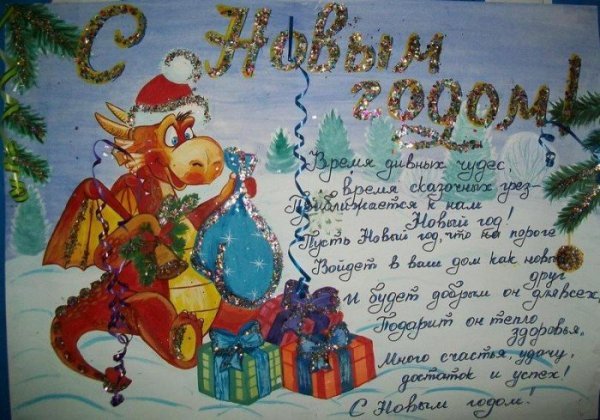 С Новым
годом!
Время дивных чудес,
время сказочных грез-
Приближается к нам
Новый год!
Пусть Новый год, что на пороге
Войдет в ваш дом как новый
друг
И будет добрым он для всех,
Подарит он тепло
здоровья,
Много счастья, удачу,
достаток и успех!
С Новым годом!